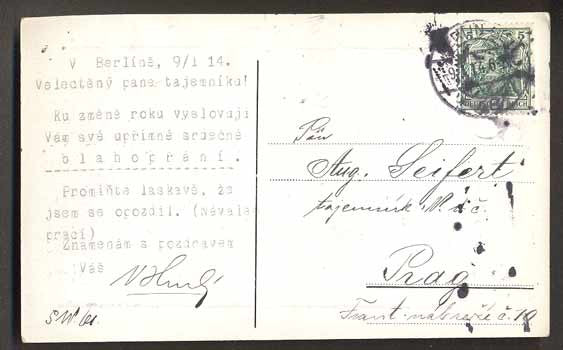 V Berlíně, 9/I 14.
Velectěný pane tajemníku!
Ku změně roku vyslovuji
Vám své upřímné srdečné
blahopřání.
Promiňte laskavě, že
jsem se opozdil. (Návalem
prací)
Znamenám s pozdravem
Váš
SW 61.
5
Pán
Aug. Seifert
tajemník N. d. č.
Prag
Frant. nabřeží č. 10